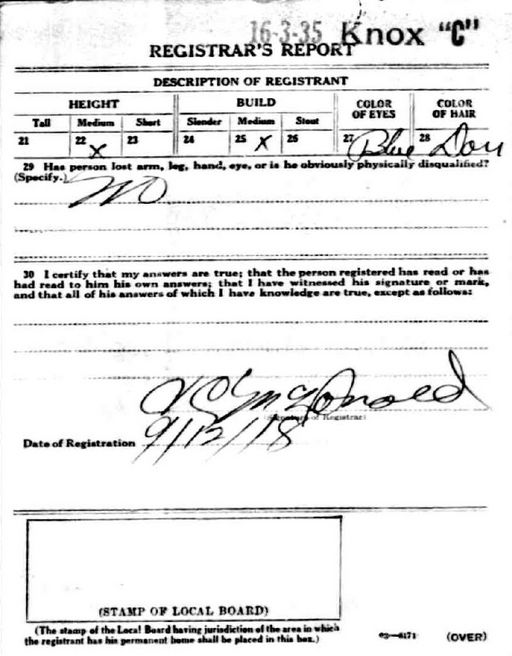 16-3-35 Knox "C"
REGISTRAR'S REPORT
DESCRIPTION OF REGISTRANT
HEIGHT BUILD COLOR OF EYES COLOR OF HAIR
Tall Medium Short Slender Medium Stout
21 22 X 23 24 25 X 26 27 Blue 28
29 Has person lost arm, leg, hand, eye, or is he obviously physically disqualified?
(Specify.) NO
30 I certify that my answers are true; that the person registered has read or has
had read to him his own answers; that I have witnessed his signature or mark,
and that all of his answers of which I have knowledge are true, except as follows:
McDonald
(Signature of Registrar)
Date of Registration 9/12/18
(STAMP OF LOCAL BOARD)
(The stamp of the Local Board having jurisdiction of the area in which
the registrant has his permanent home shall be placed in this box.)
03—6171 (OVER)